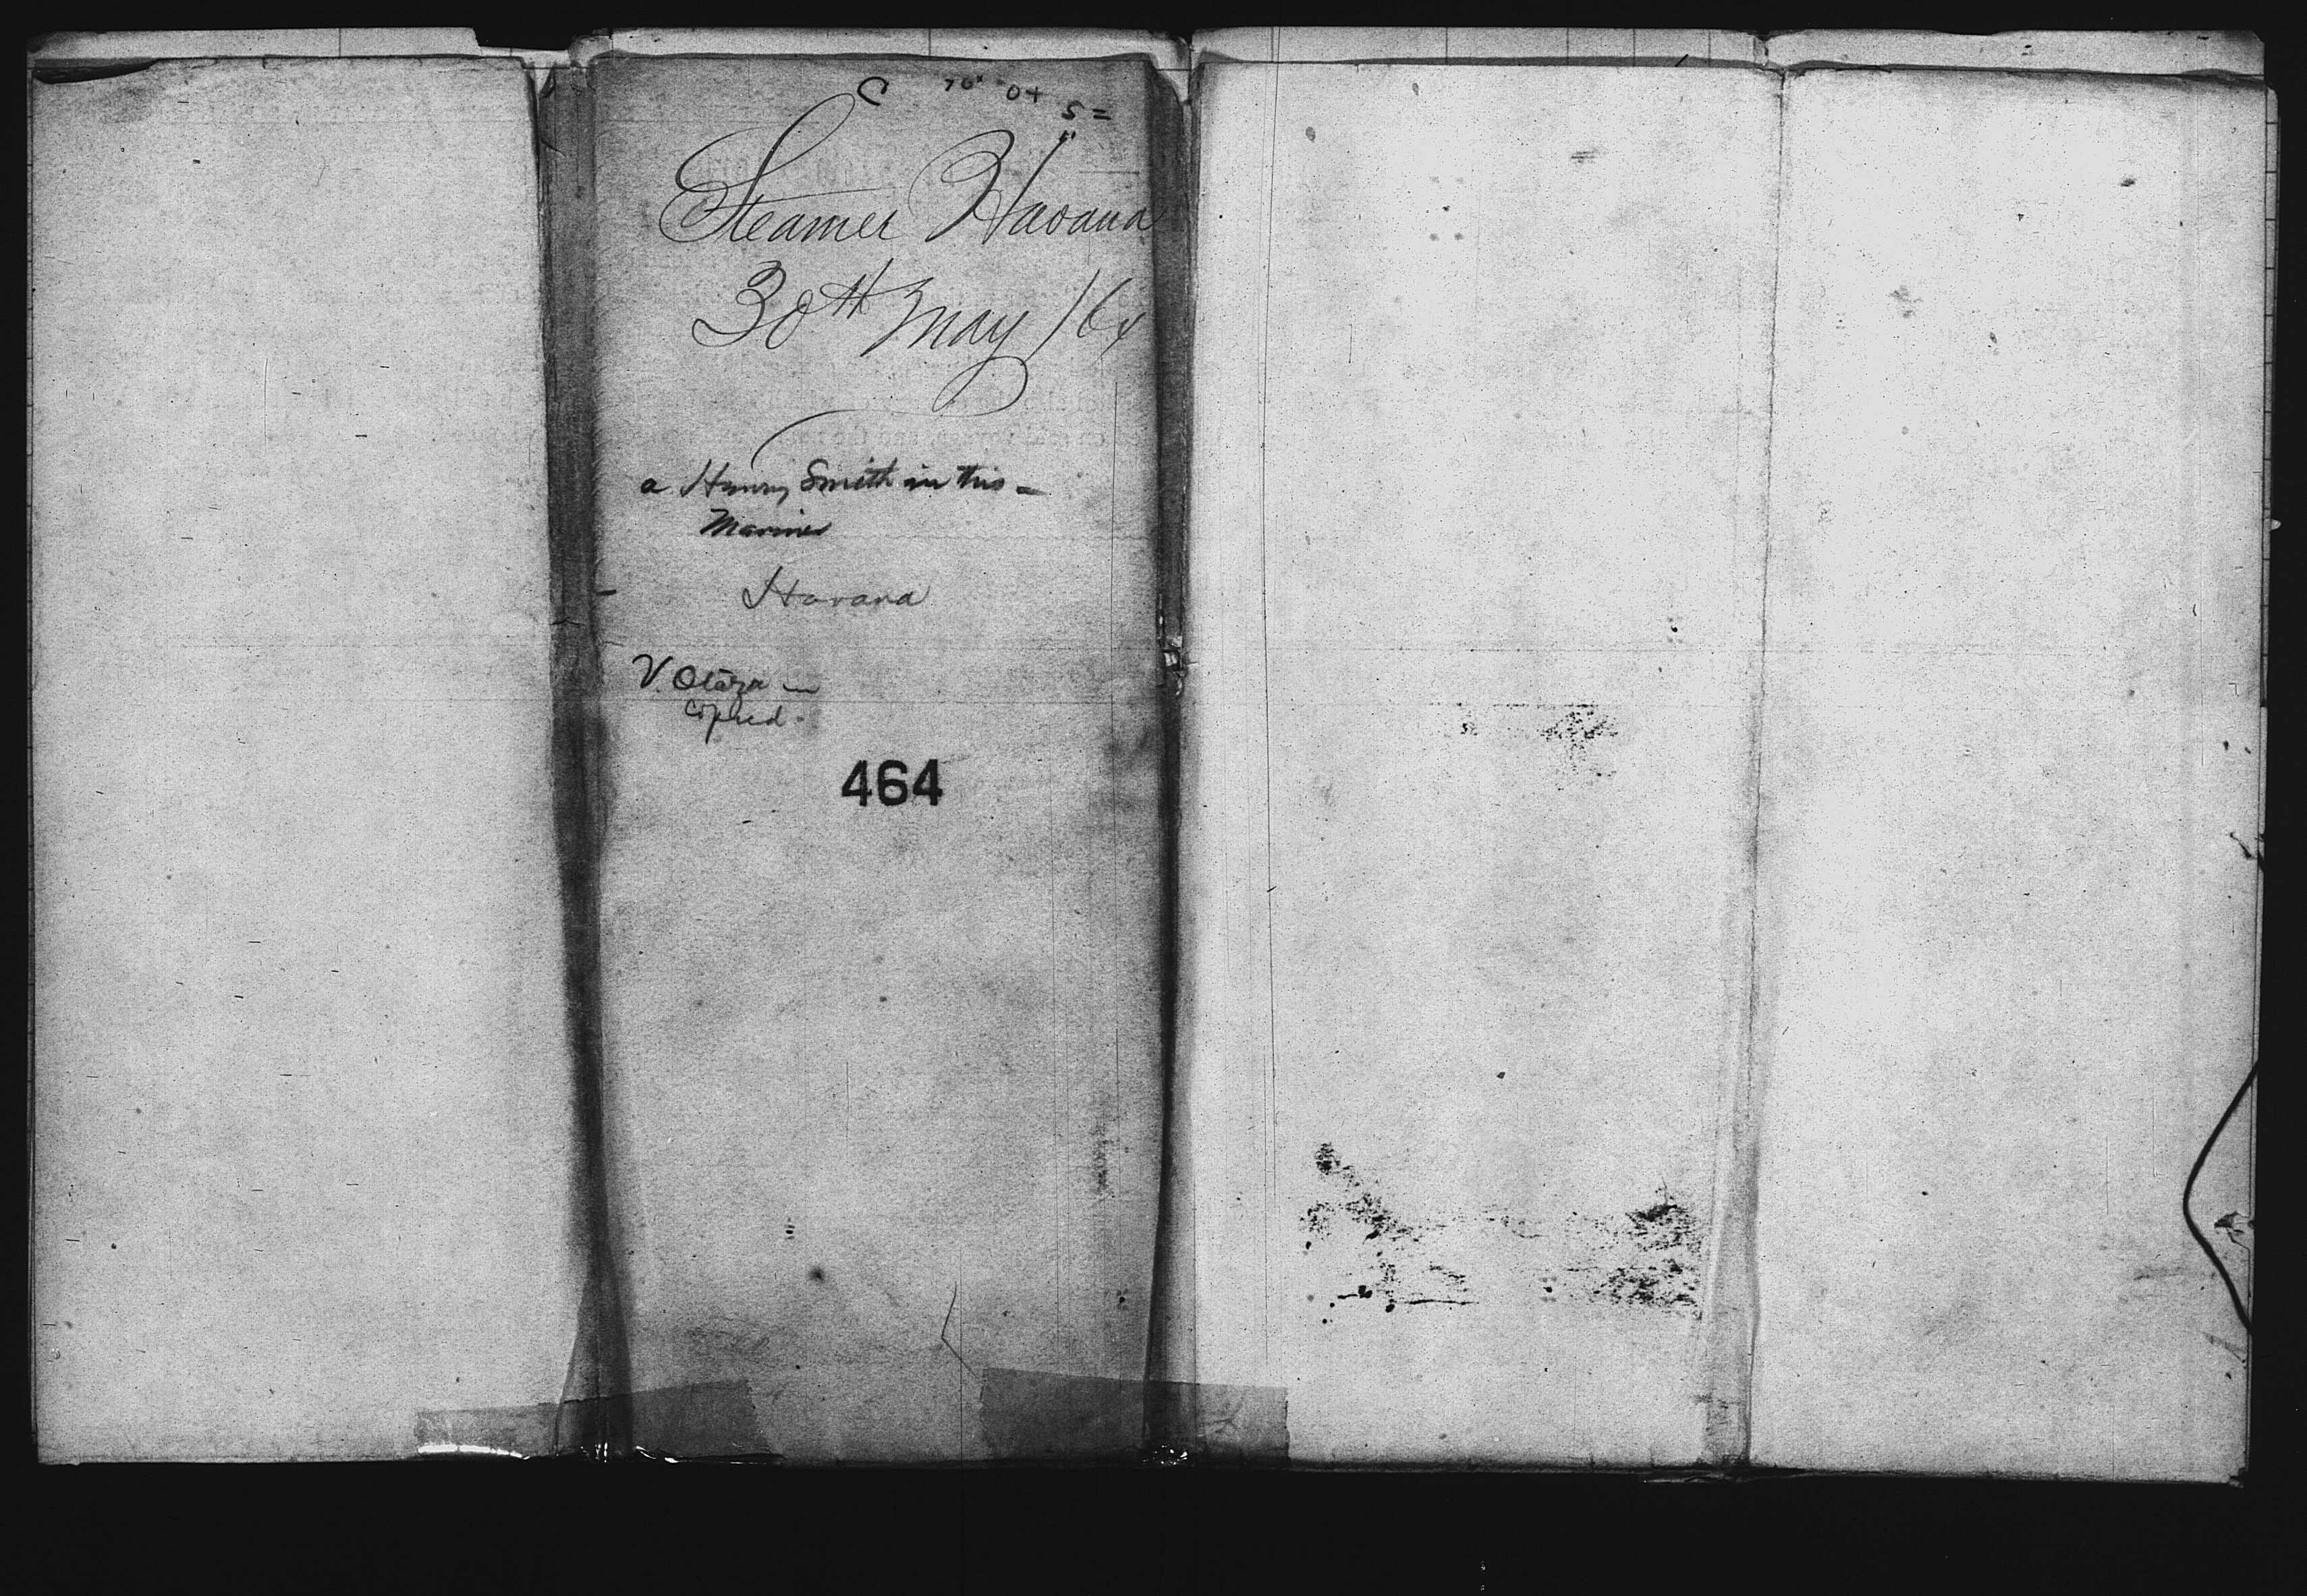 C 70" 0+ 5=
Steamer Havana
30th May /64
a Henry Smith in this -
Mariner
Havana
V. Olazra -
Copied -
464